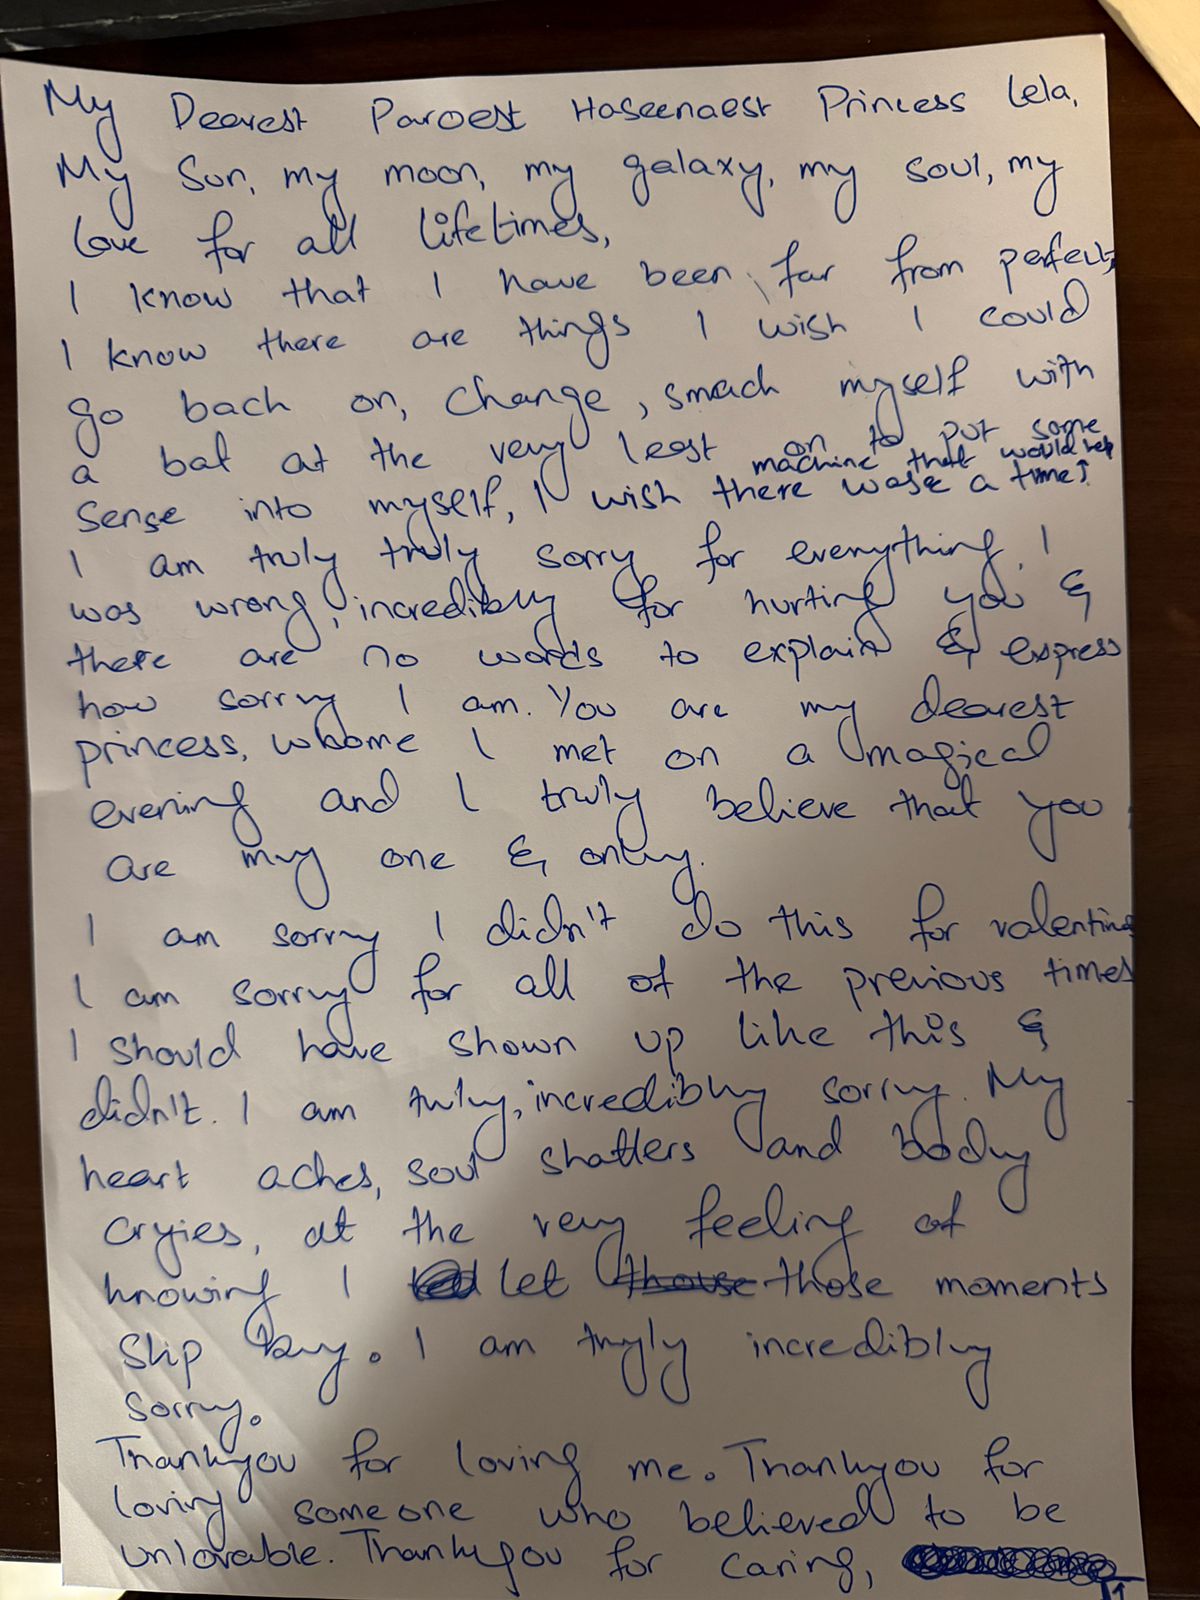 My Dearest Paroest Haseenaest Princess Lela,
My Sun, my moon, my galaxy, my soul, my
love for all lifetimes,
I know that I have been, far from perfect,
I know there are things I wish I could
go back on, change, smack myself with
a bat at the very least on to put some
Sense into myself, I wish there was a time
machine that would help
I am truly truly sorry for everything, I
was wrong, incredibly for hurting you &
there are no words to explain & express
how sorry I am. You are my dearest
princess, whome I met on a magical
evening and I truly believe that you
are my one & only.
I am sorry I didn't do this for valentine
I am sorry for all of the previous times
I should have shown up like this &
didn't. I am truly, incredibly sorry. My
heart aches, soul shatters and body
cryies, at the very feeling of
knowing I let those moments
slip by. I am tryly incredibly
sorry.
Thankyou for loving me. Thankyou for
loving someone who believed to be
unlovable. Thankyou for caring,